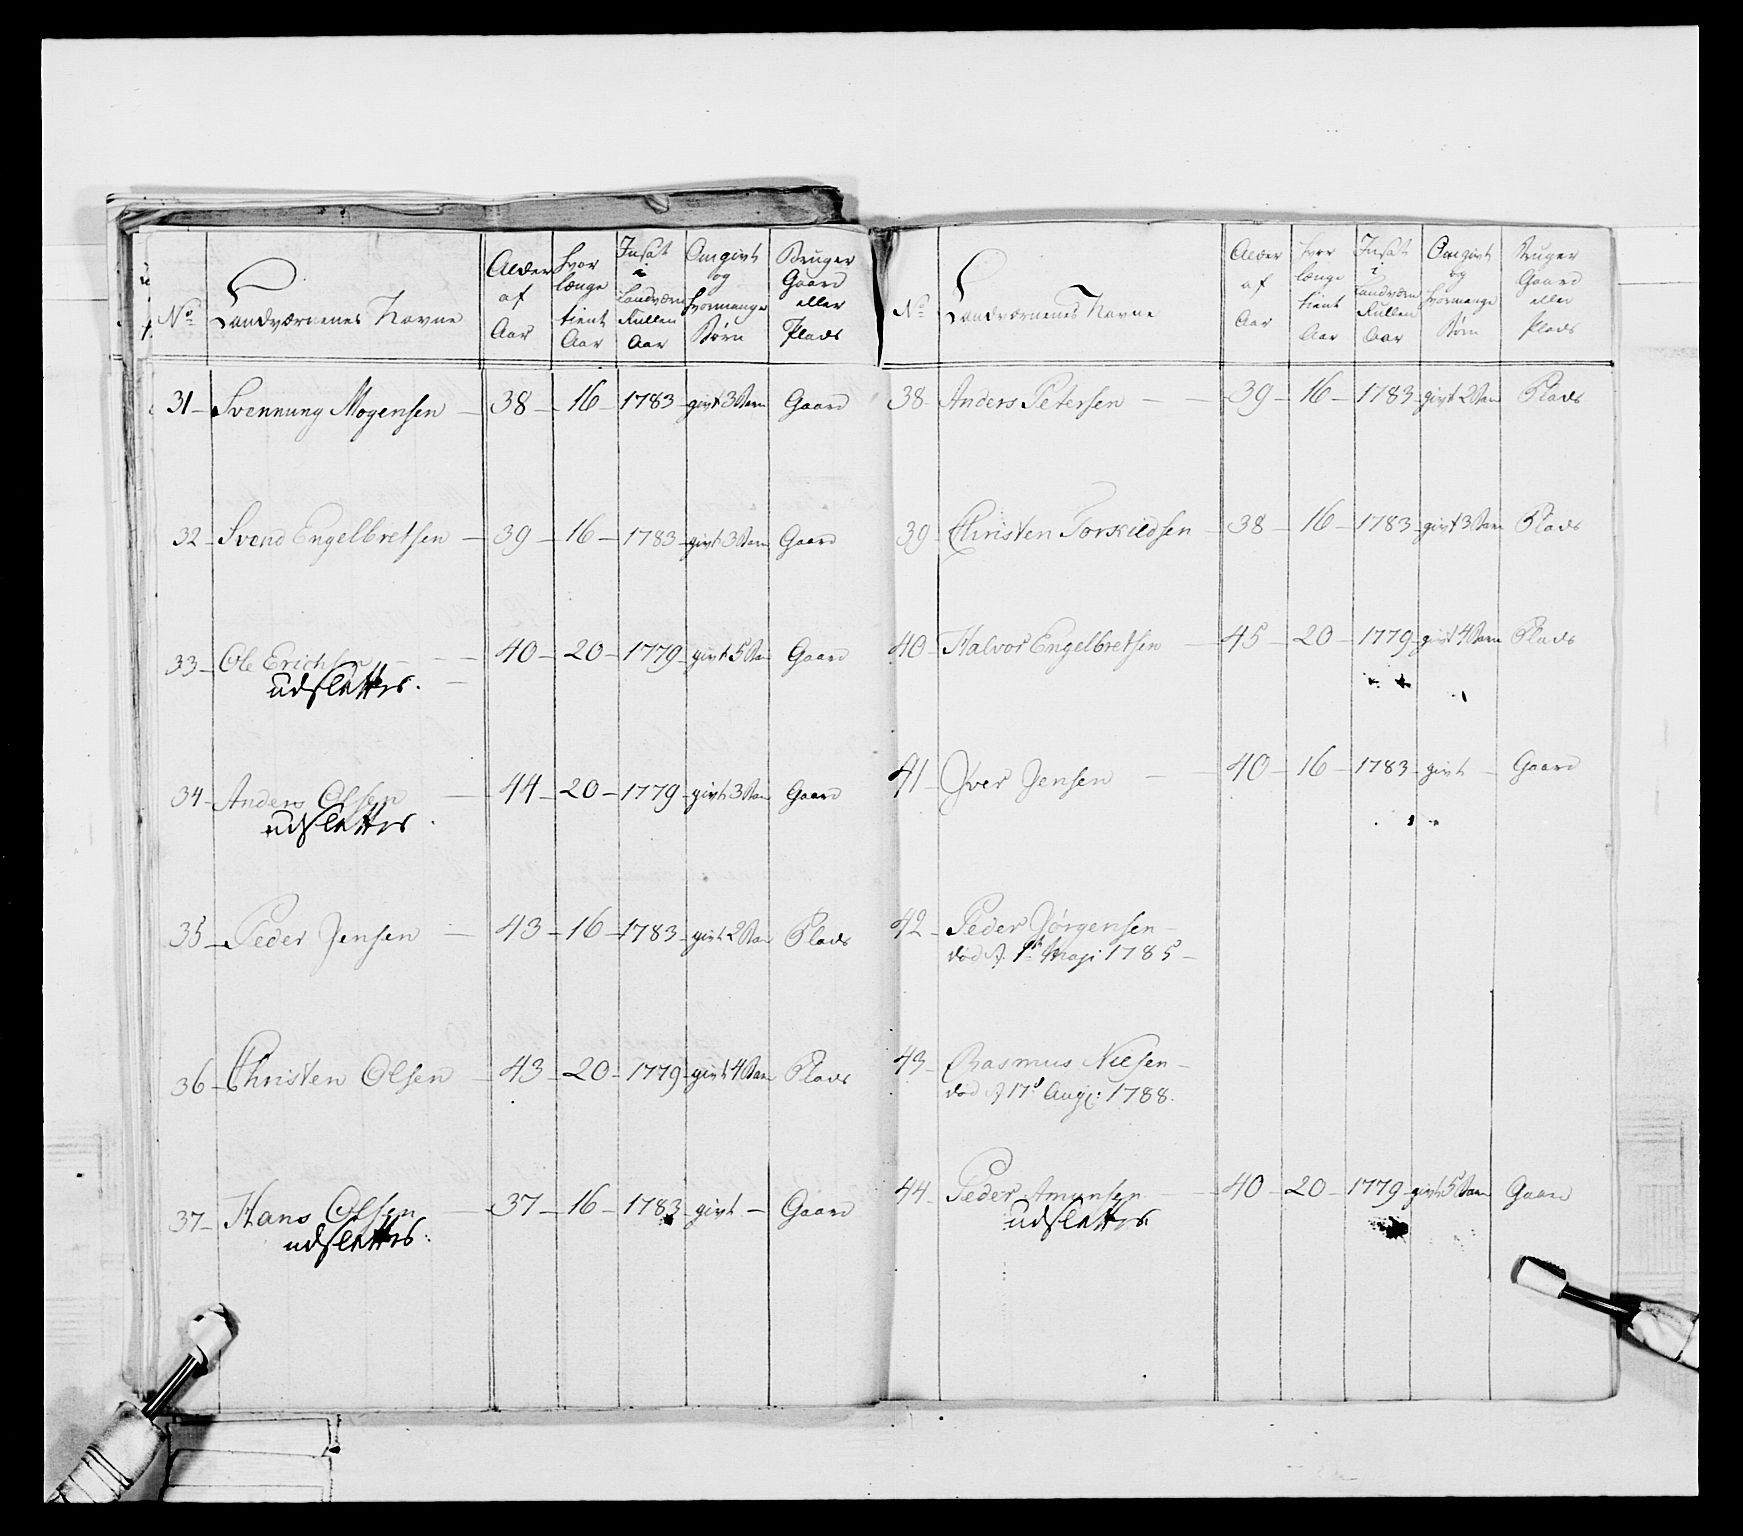 No
Landværnenes Navne
Alder af Aar
hvor længe tient Aar
Indsat i Landværn Rullen Aar
Om givt og hvormange Børn
Bruger Gaard eller Plads
31 – Svennung Mogensen – 38 – 16 – 1783 – givt 3 Børn Gaard
32 – Svend Engelbretsen – 39 – 16 – 1783 – givt 3 Børn Gaard
33 – Ole Erichsen – 40 – 20 – 1779 – givt 5 Børn Gaard
udslettes.
34 – Anders Olsen – 44 – 20 – 1779 – givt 3 Børn Gaard
udslettes.
35 – Peder Jensen – 43 – 16 – 1783 – givt 2 Børn Plads
36 – Christen Olsen – 43 – 20 – 1779 – givt 4 Børn Plads
37 – Hans Olsen – 37 – 16 – 1783 – givt – Gaard
udslettes.
No
Landværnenes Navne
Alder af Aar
hvor længe tient Aar
Indsat i Landværn Rullen Aar
Om givt og hvormange Børn
Bruger Gaard eller Plads
38 – Anders Petersen – – 39 – 16 – 1783 – givt 2 Børn Plads
39 – Christen Torkildsen – 38 – 16 – 1783 – givt 3 Børn Plads
40 – Halvor Engelbretsen – 45 – 20 – 1779 – givt 4 Børn Plads
41 – Iver Jensen – – 40 – 16 – 1783 – givt – Gaard
42 – Peder Jørgensen –
død d. 1st Maji 1785 –
43 – Rasmus Nielsen –
død d. 17d Aug: 1788.
44 – Peder Amunsen – 40 – 20 – 1779 – givt 5 Børn Gaard
udslettes.